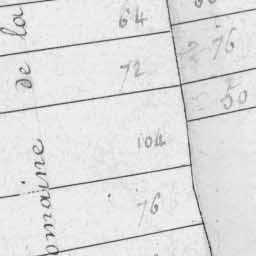 64
72
104
76
76
50
de la
omaine